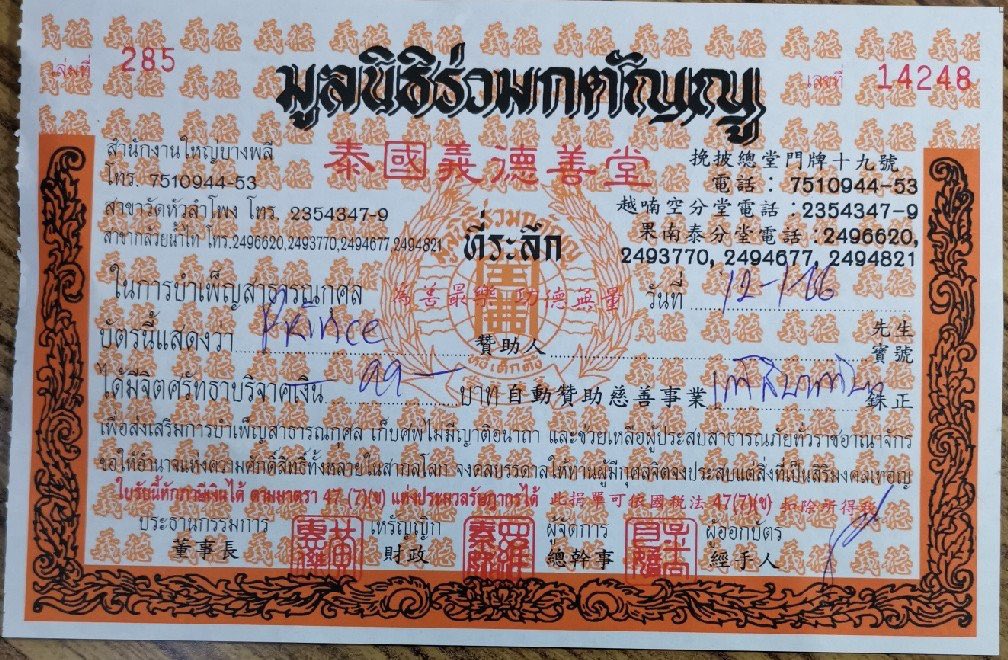 เล่มที่ 285
เลขที่ 14248
มูลนิธิร่วมกตัญญู
泰國義德善堂
สำนักงานใหญ่บางพลี
โทร. 7510944-53
สาขาวัดหัวลำโพง โทร. 2354347-9
สาขากล้วยน้ำไท โทร.2496620,2493770,2494677,2494821
挽披總堂門牌十九號
電話：7510944-53
越喃空分堂電話：2354347-9
果南泰分堂電話：2496620,
2493770, 2494677, 2494821
ที่ระลึก
ในการบำเพ็ญสาธารณกุศล
為善最樂 功德無量
วันที่ 12-1-66
บัตรนี้แสดงว่า Prince 贊助人 先生 寶號
ได้มีจิตศรัทธาบริจาคเงิน 99 บาท 自動贊助慈善事業 銖正
เพื่อส่งเสริมการบำเพ็ญสาธารณกุศล เก็บศพไม่มีญาติอนาถา และช่วยเหลือผู้ประสบสาธารณภัยทั่วราชอาณาจักร
ขอให้อำนาจแห่งความศักดิ์สิทธิ์ทั้งหลายในสากลโลก จงดลบรรดาลให้ท่านผู้มีกุศลจิตจงประสบแต่สิ่งที่เป็นสิริมงคลเทอญ
ใบรับนี้หักภาษีเงินได้ ตามมาตรา 47 (7)(ข) แห่งประมวลรัษฎากรได้ 此捐單可依國稅法 47(7)(ข) 扣除所得稅
ประธานกรรมการ เหรัญญิก ผู้จัดการ ผู้ออกบัตร
董事長 財政 總幹事 經手人